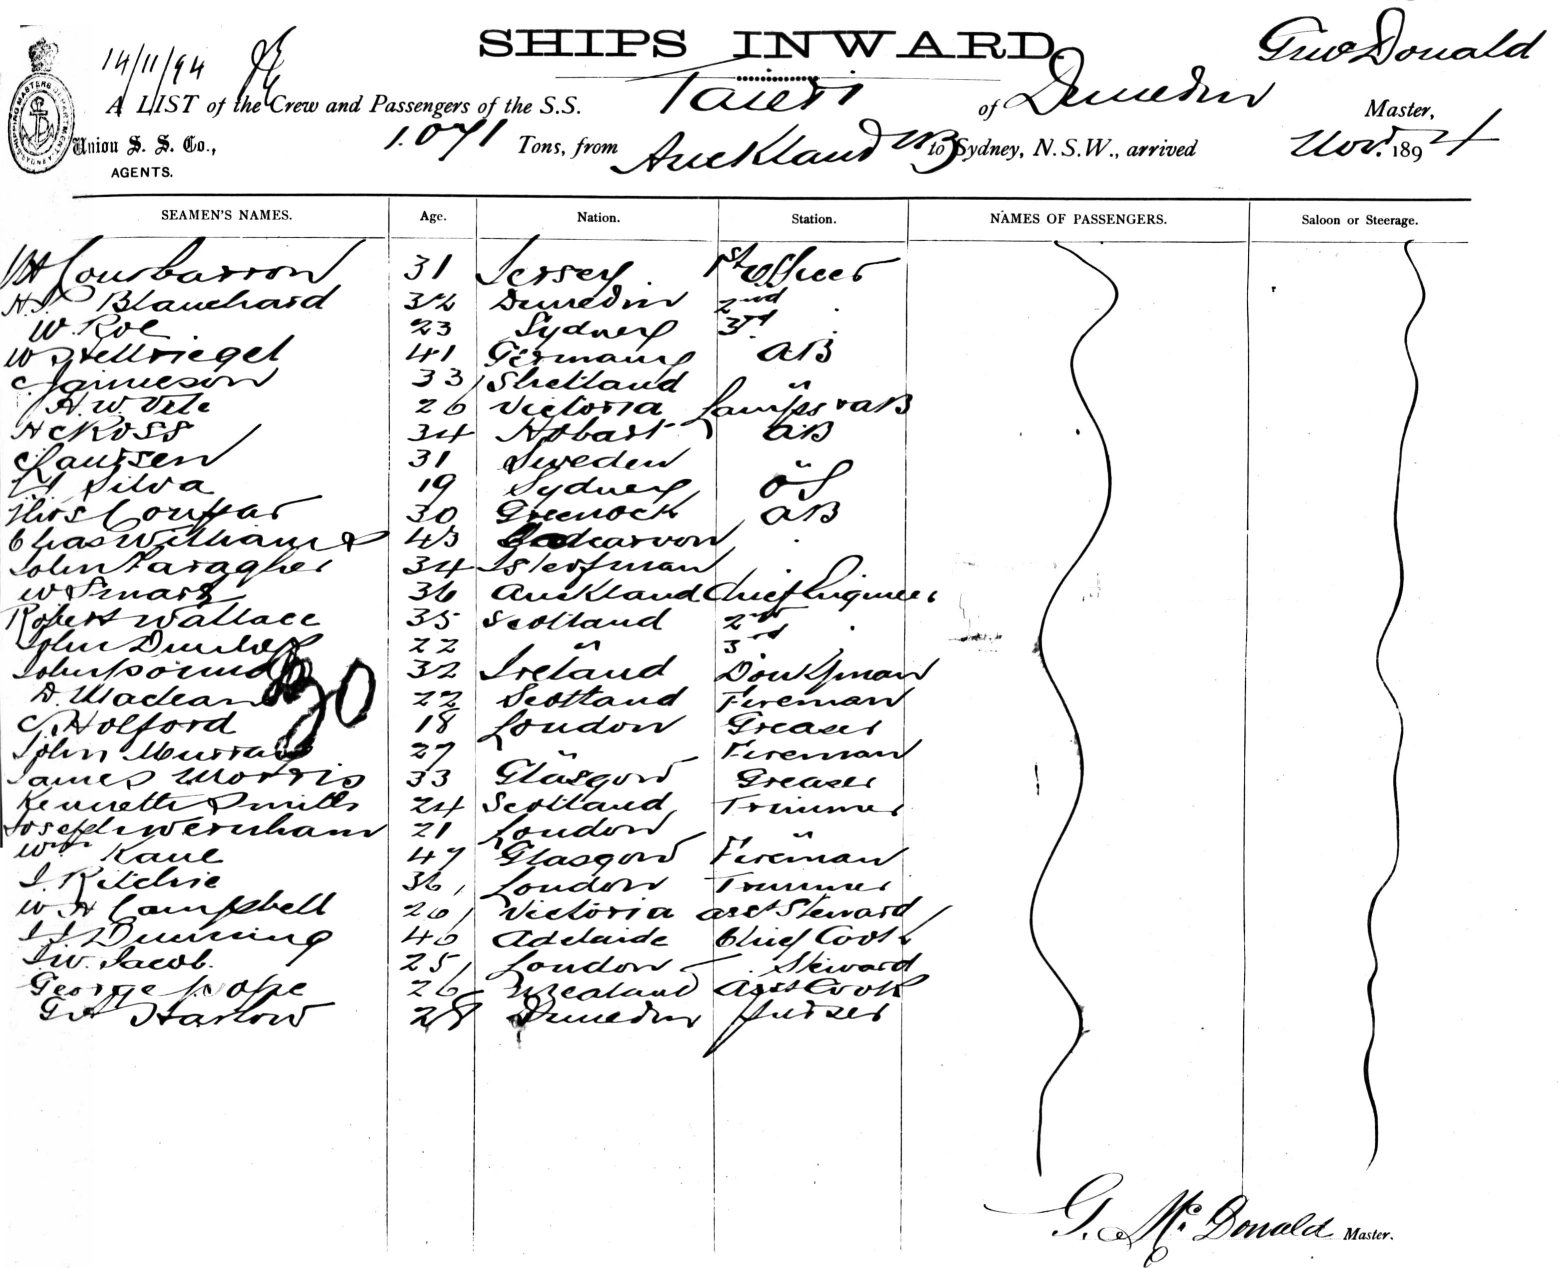 SHIPS INWARD.
14/11/94
G McDonald
A LIST of the Crew and Passengers of the S.S. Taieri of Dunedin Master,
Union S. S. Co., 1.071 Tons, from Auckland to Sydney, N.S.W., arrived Nov. 1894
AGENTS.
SEAMEN'S NAMES. Age. Nation. Station. NAMES OF PASSENGERS. Saloon or Steerage.
31 Jersey 1st Officer
Blanchard 32 Dunedin 2nd "
W. Roe 23 Sydney 3rd "
W Hellriegel 41 Germany AB
C Jamieson 33 Shetland
H. W. Vile 26 Victoria Lamps & AB
Ross 34 Hobart AB
C Laussen 31 Sweden "
Silva 19 Sydney OS
Thos Couppar 30 Greenock AB
Chas Williams 43 Carnarvon "
John Faragher 34 Isle of man
W Smart 36 Auckland Chief Engineer
Robert Wallace 35 Scotland 2nd "
John Dunlop 22 " 3rd
John 32 Ireland Donkyman
D. Maclean 22 Scotland Fireman
30
C Holford 18 London Greaser
John Murray 27 " Fireman
James Morris 33 Glasgow Greaser
Kenneth Smith 24 Scotland Trimmer
Joseph Wernham 21 London "
Wm Kane 47 Glasgow Fireman
J. Ritchie 36 London Trimmer
W H Campbell 26 Victoria asst Steward
Dunning 40 Adelaide Chief Cook
J. W. Jacob. 25 London Steward
George Pope 26 N Zealand Asst Cook
G H Harlow 28 Dunedin Purser
G. McDonald Master.